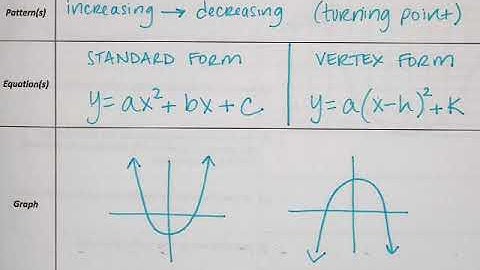 Pattern(s)
increasing → decreasing (turning point)
Equation(s)
STANDARD FORM
y=ax²+bx+c
VERTEX FORM
y=a(x-h)²+K
Graph